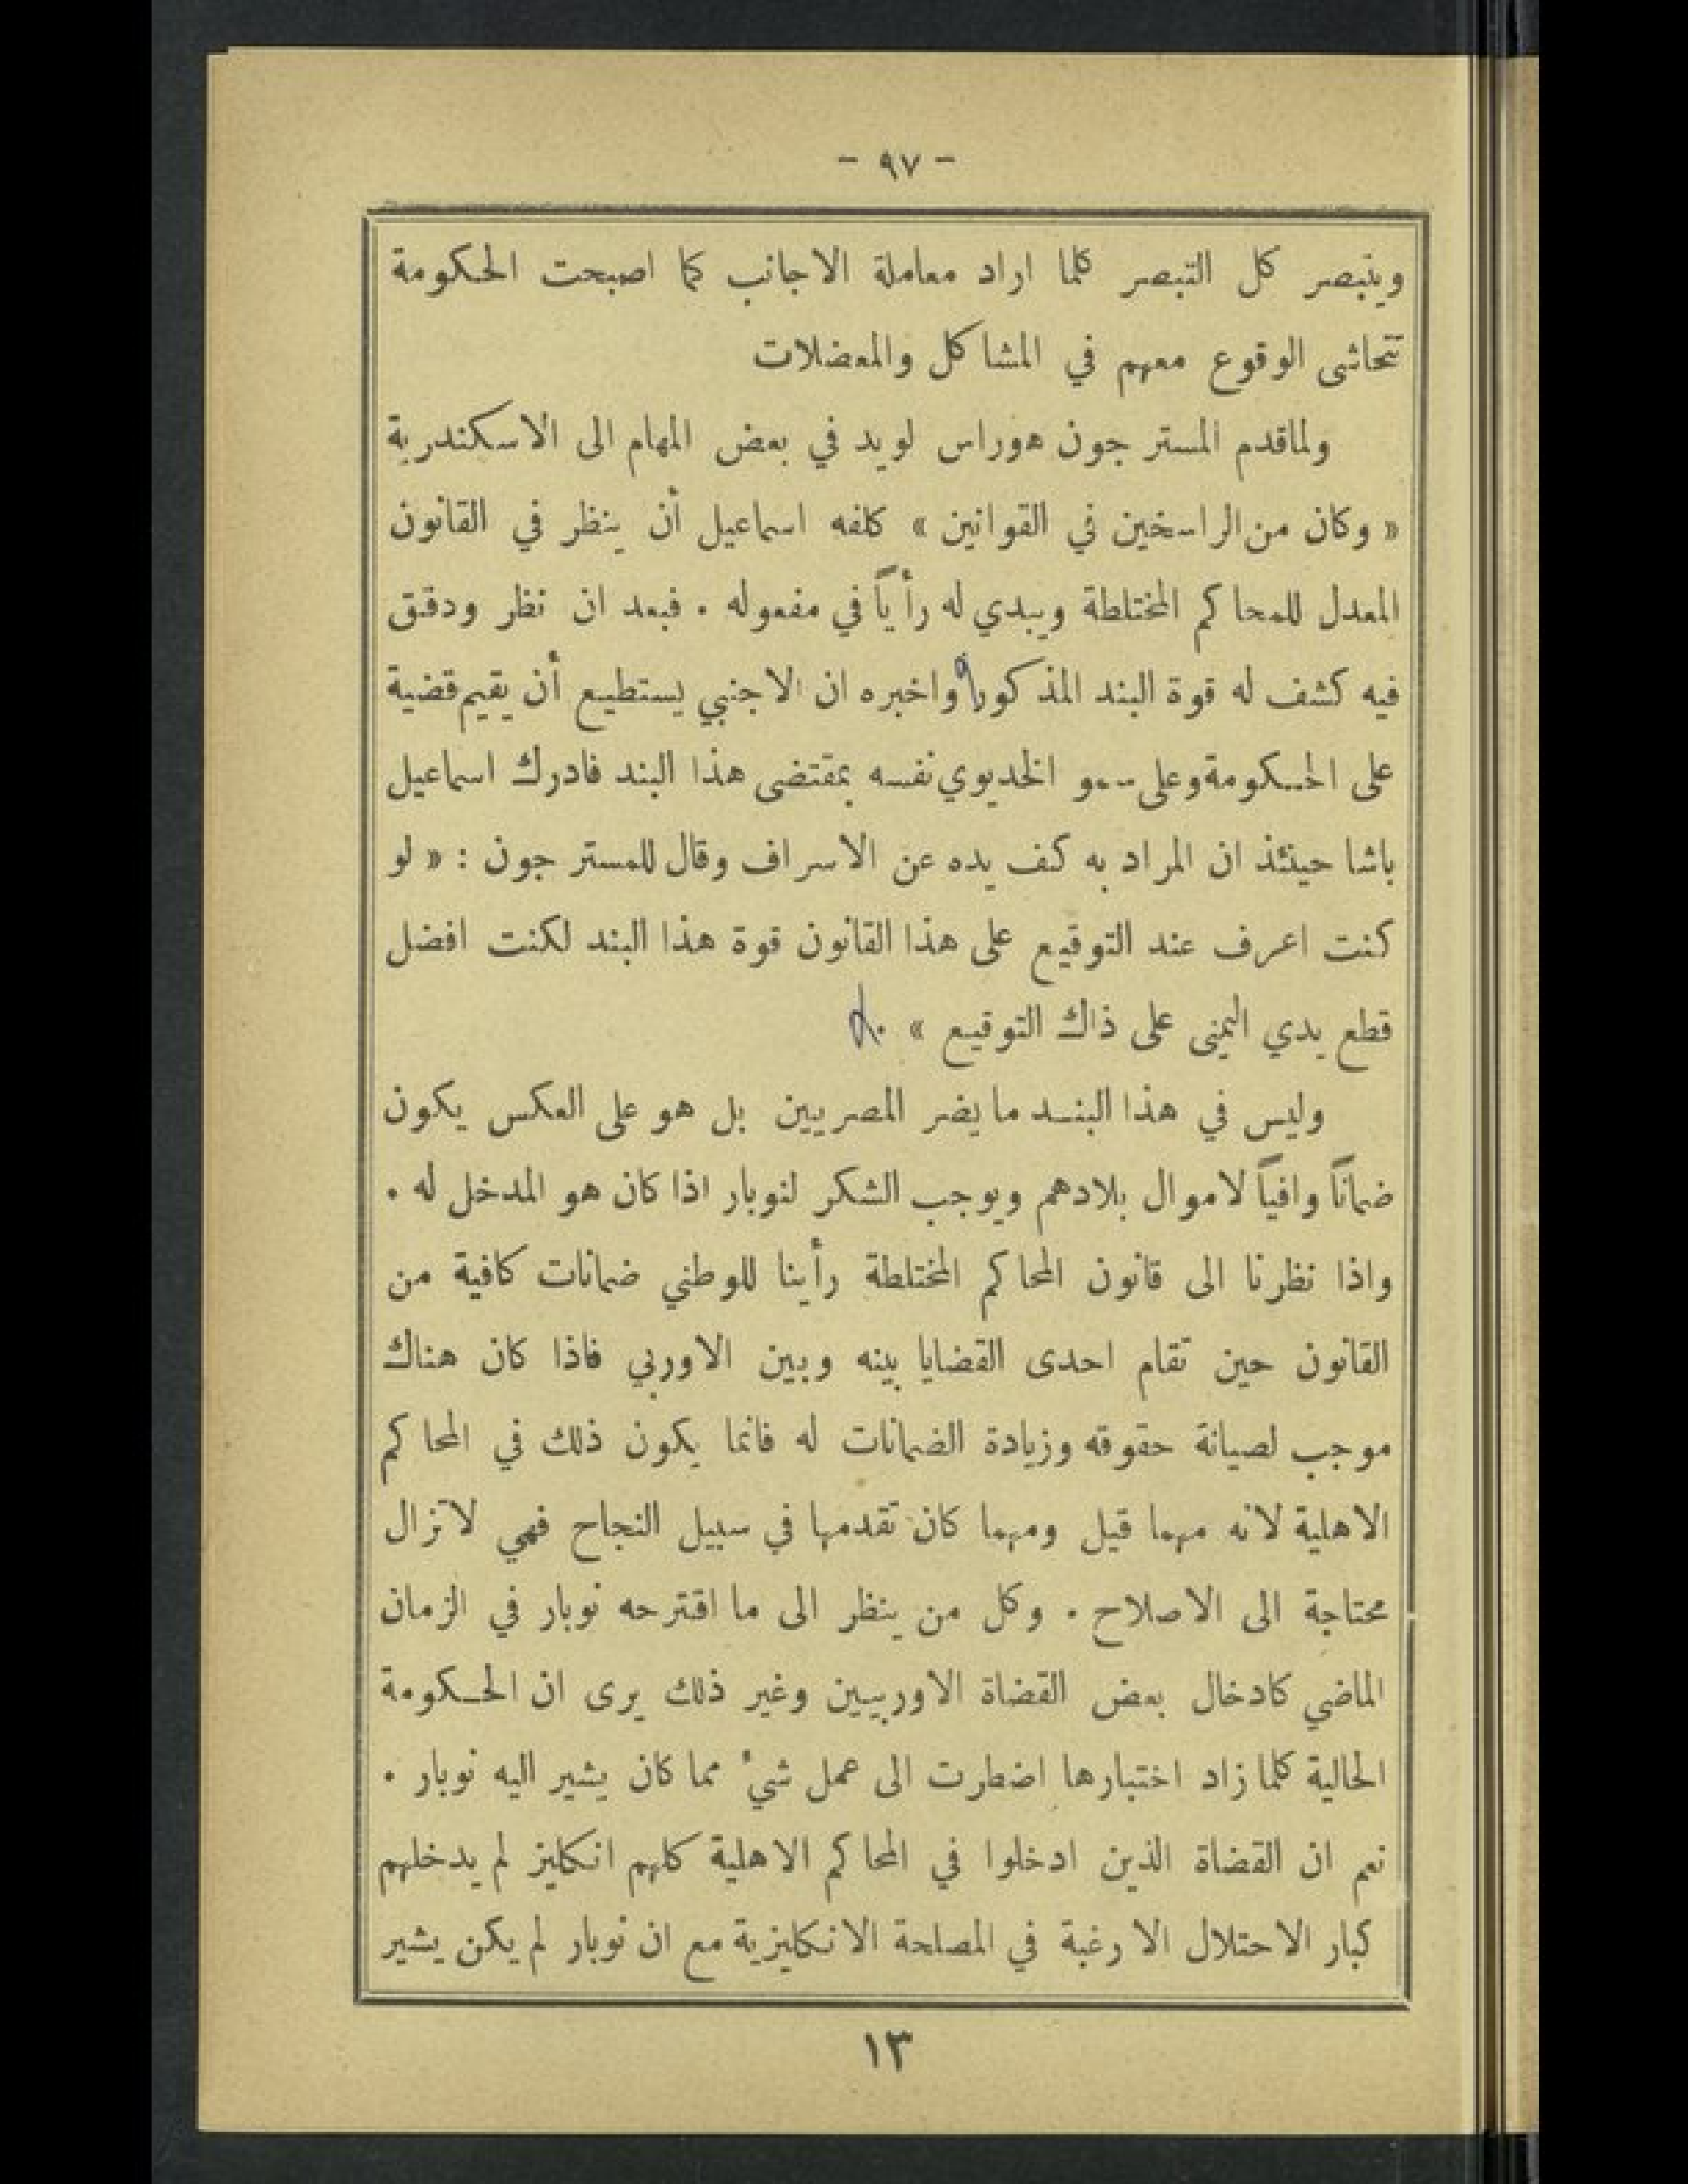 - ٩٧ -
ويتبصر كل التبصر كلما اراد معاملة الاجانب كما اصبحت الحكومة
تتحاشى الوقوع معهم في المشاكل والمعضلات
ولما قدم المستر جون هوراس لويد في بعض المهام الى الاسكندرية
« وكان من الراسخين في القوانين » كلفه اسماعيل أن ينظر في القانون
المعدل للمحاكم المختلطة ويبدي له رأياً في مفعوله . فبعد ان نظر ودقق
فيه كشف له قوة البند المذكور واخبره ان الاجنبي يستطيع أن يقيم قضية
على الحكومة وعلى سمو الخديوي نفسه بمقتضى هذا البند فادرك اسماعيل
باشا حينئذ ان المراد به كف يده عن الاسراف وقال للمستر جون : « لو
كنت اعرف عند التوقيع على هذا القانون قوة هذا البند لكنت افضل
قطع يدي اليمنى على ذاك التوقيع » .
وليس في هذا البند ما يضر المصريين بل هو على العكس يكون
ضماناً وافياً لاموال بلادهم ويوجب الشكر لنوبار اذا كان هو المدخل له .
واذا نظرنا الى قانون المحاكم المختلطة رأينا للوطني ضمانات كافية من
القانون حين تقام احدى القضايا بينه وبين الاوربي فاذا كان هناك
موجب لصيانة حقوقه وزيادة الضمانات له فانما يكون ذلك في المحاكم
الاهلية لانه مهما قيل ومهما كان تقدمها في سبيل النجاح فهي لا تزال
محتاجة الى الاصلاح . وكل من ينظر الى ما اقترحه نوبار في الزمان
الماضي كادخال بعض القضاة الاوربيين وغير ذلك يرى ان الحكومة
الحالية كلما زاد اختبارها اضطرت الى عمل شيء مما كان يشير اليه نوبار .
نعم ان القضاة الذين ادخلوا في المحاكم الاهلية كلهم انكليز لم يدخلهم
كبار الاحتلال الا رغبة في المصلحة الانكليزية مع ان نوبار لم يكن يشير
١٣